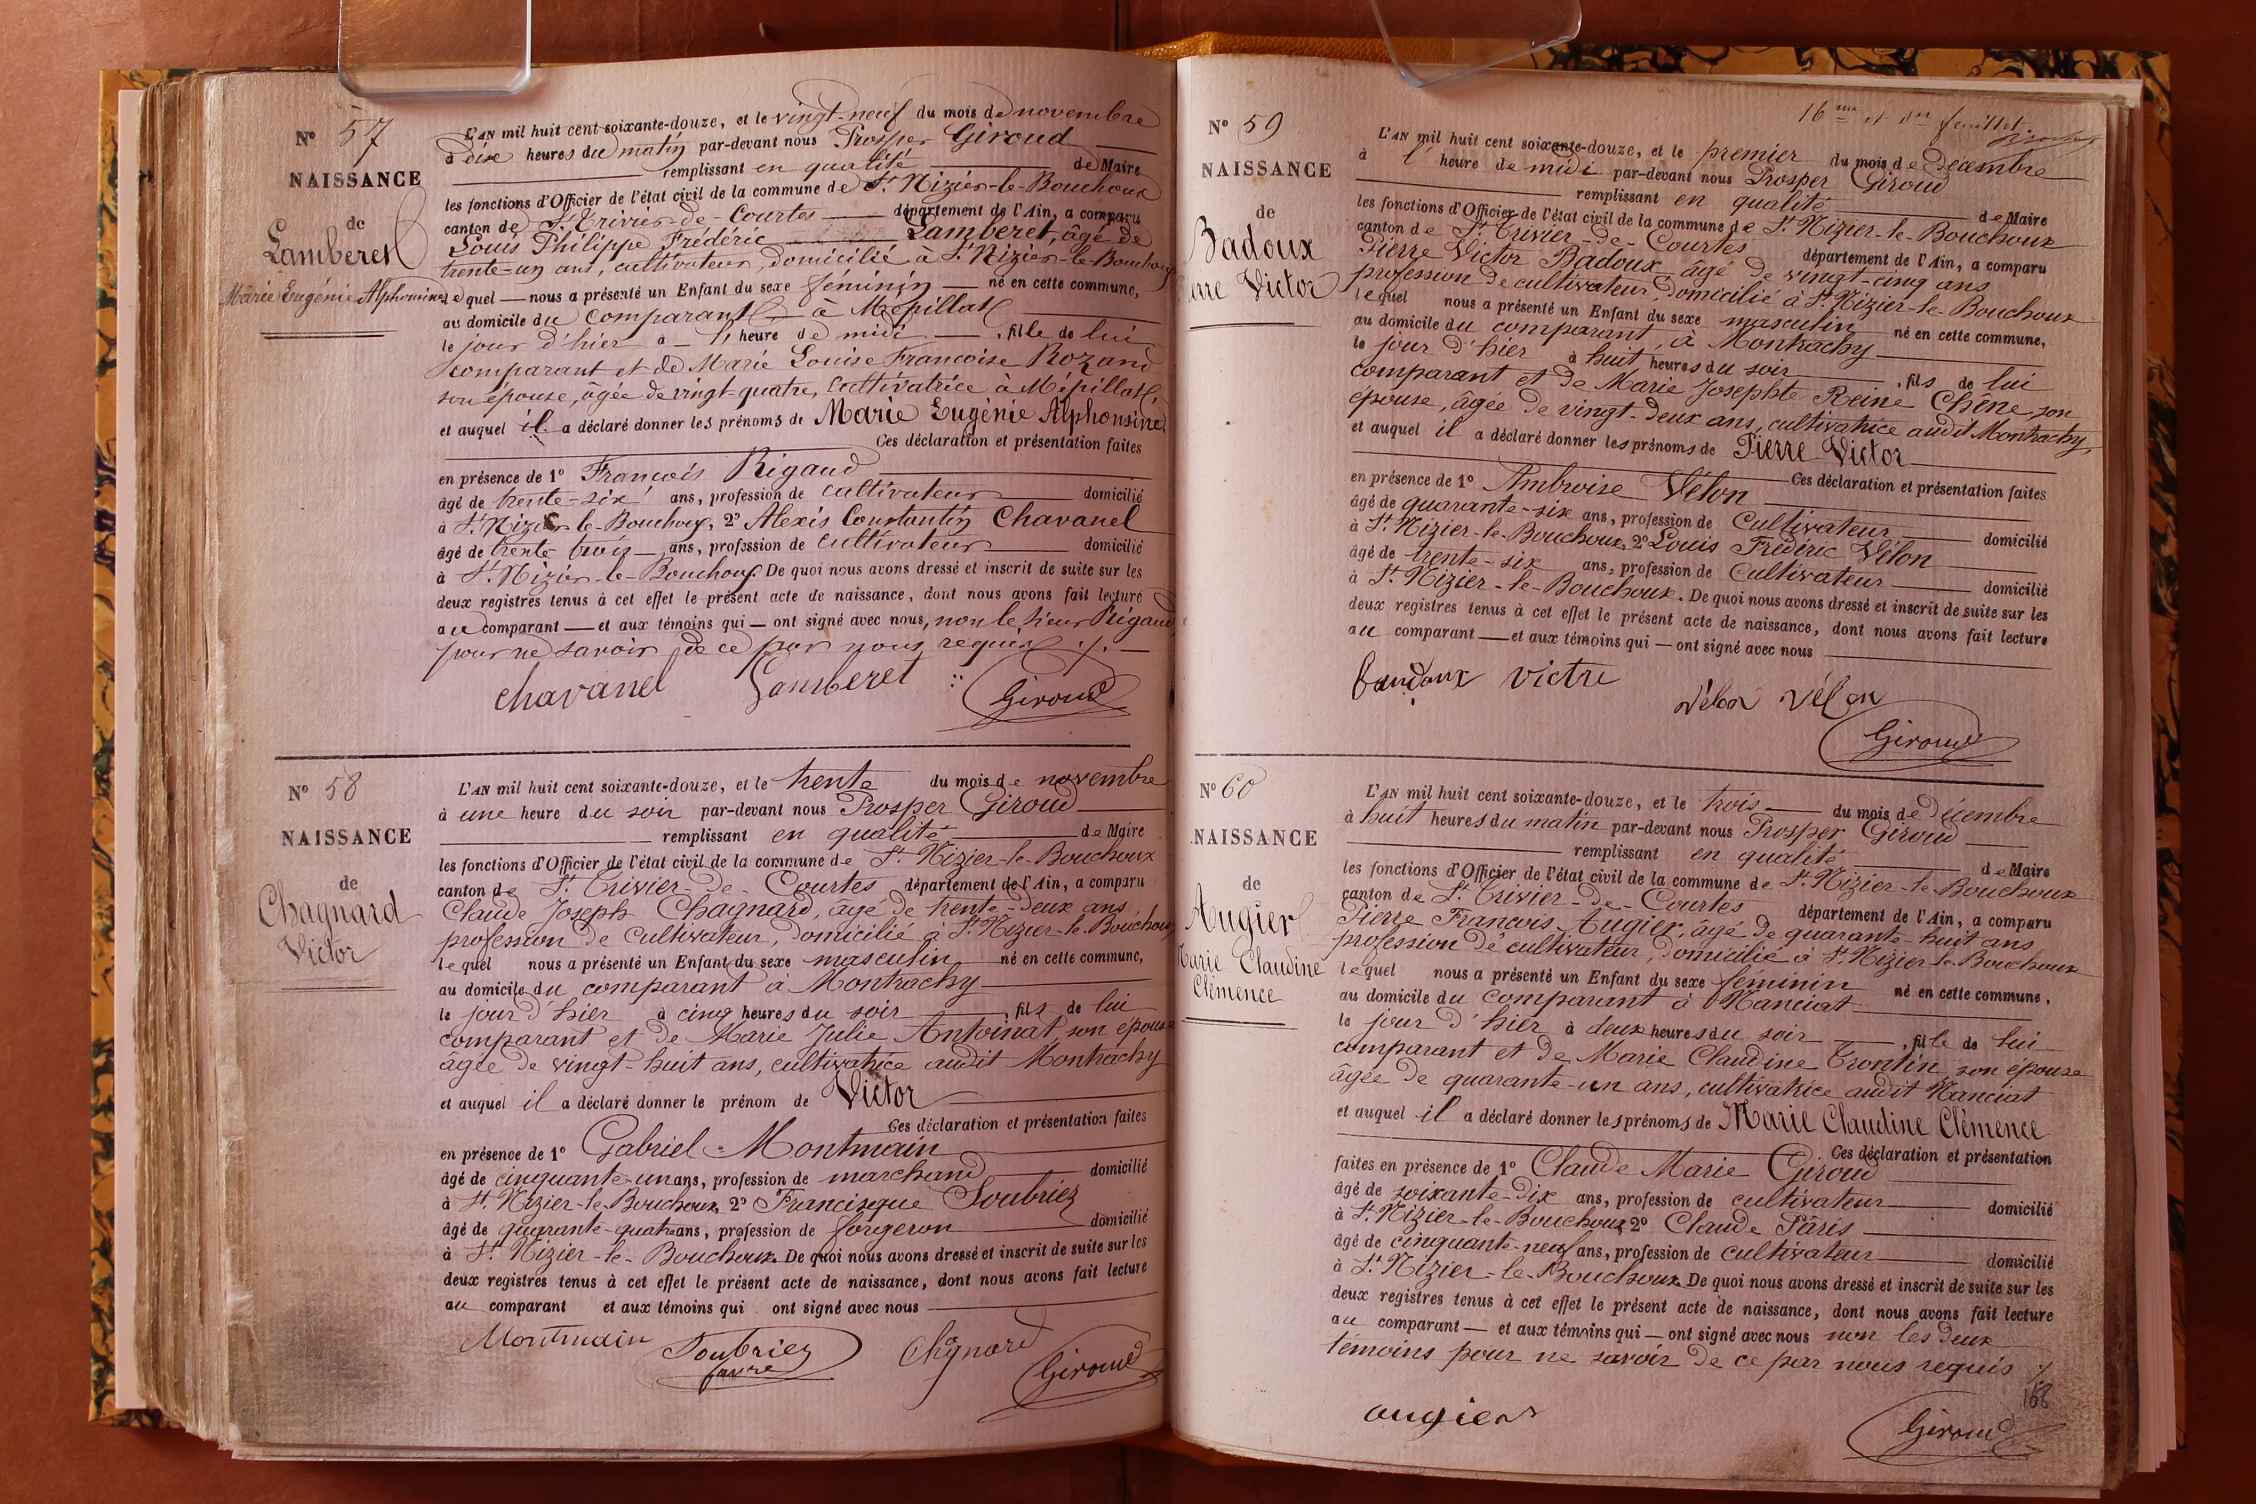 N° 57
NAISSANCE
de
Lamberet
Marie Eugénie Alphonsine
L'AN mil huit cent soixante-douze, et le vingt-neuf du mois de novembre
à dix heures du matin par-devant nous Prosper Giroud
remplissant en qualité de Maire
les fonctions d'Officier de l'état civil de la commune de St Nizier-le-Bouchoux
canton de St Trivier-de-Courtes département de l'Ain, a comparu
Louis Philippe Frédéric Lamberet, âgé de
trente-un ans, cultivateur, domicilié à St Nizier-le-Bouchoux
lequel nous a présenté un Enfant du sexe féminin né en cette commune,
au domicile du comparant à Mépillat
le jour d'hier à l' heure de midi, fille de lui
comparant et de Marie Louise Françoise Rozand
son épouse, âgée de vingt-quatre, cultivatrice à Mépillat,
et auquel il a déclaré donner les prénoms de Marie Eugénie Alphonsine
Ces déclaration et présentation faites
en présence de 1° François Rigaud
âgé de trente-six ans, profession de cultivateur domicilié
à St Nizier-le-Bouchoux, 2° Alexis Constantin Chavanel
âgé de trente trois ans, profession de cultivateur domicilié
à St Nizier-le-Bouchoux. De quoi nous avons dressé et inscrit de suite sur les
deux registres tenus à cet effet le présent acte de naissance, dont nous avons fait lecture
au comparant et aux témoins qui ont signé avec nous, non le sieur Rigaud
pour ne savoir de ce par nous requis ./.
Chavanel Lamberet Giroud
N° 58
NAISSANCE
de
Chagnard
Victor
L'AN mil huit cent soixante-douze, et le trente du mois de novembre
à une heure du soir par-devant nous Prosper Giroud
remplissant en qualité de Maire
les fonctions d'Officier de l'état civil de la commune de St Nizier-le-Bouchoux
canton de St Trivier-de-Courtes département de l'Ain, a comparu
Claude Joseph Chagnard, âgé de trente-deux ans,
profession de cultivateur, domicilié à St Nizier-le-Bouchoux
lequel nous a présenté un Enfant du sexe masculin né en cette commune,
au domicile du comparant à Montrachy
le jour d'hier à cinq heures du soir, fils de lui
comparant et de Marie Julie Antoinat, son épouse
âgée de vingt-huit ans, cultivatrice audit Montrachy
et auquel il a déclaré donner le prénom de Victor
Ces déclaration et présentation faites
en présence de 1° Gabriel Montmain
âgé de cinquante-un ans, profession de marchand domicilié
à St Nizier-le-Bouchoux, 2° Francisque Soubriez
âgé de quarante-quatre ans, profession de forgeron domicilié
à St Nizier-le-Bouchoux. De quoi nous avons dressé et inscrit de suite sur les
deux registres tenus à cet effet le présent acte de naissance, dont nous avons fait lecture
au comparant et aux témoins qui ont signé avec nous
Montmain Soubriez Chgnard Giroud
favre
16me et dr feuillet.
N° 59
NAISSANCE
de
Badoux
Pierre Victor
L'AN mil huit cent soixante-douze, et le premier du mois de décembre
à l' heure de midi par-devant nous Prosper Giroud
remplissant en qualité de Maire
les fonctions d'Officier de l'état civil de la commune de St Nizier-le-Bouchoux
canton de St Trivier-de-Courtes département de l'Ain, a comparu
Pierre Victor Badoux, âgé de vingt-cinq ans
profession de cultivateur, domicilié à St Nizier-le-Bouchoux
lequel nous a présenté un Enfant du sexe masculin né en cette commune,
au domicile du comparant, à Montrachy
le jour d'hier à huit heures du soir, fils de lui
comparant et de Marie Josephte Reine Chêne, son
épouse, âgée de vingt-deux ans, cultivatrice audit Montrachy,
et auquel il a déclaré donner les prénoms de Pierre Victor
Ces déclaration et présentation faites
en présence de 1° Ambroise Vélon
âgé de quarante-six ans, profession de cultivateur domicilié
à St Nizier-le-Bouchoux, 2° Louis Frédéric Vélon
âgé de trente-six ans, profession de cultivateur domicilié
à St Nizier-le-Bouchoux. De quoi nous avons dressé et inscrit de suite sur les
deux registres tenus à cet effet le présent acte de naissance, dont nous avons fait lecture
au comparant et aux témoins qui ont signé avec nous
baudoux victre Vélon Vélon
Giroud
N° 60
NAISSANCE
de
Augier
Marie Claudine
Clémence
L'AN mil huit cent soixante-douze, et le trois du mois de décembre
à huit heures du matin par-devant nous Prosper Giroud
remplissant en qualité de Maire
les fonctions d'Officier de l'état civil de la commune de St Nizier-le-Bouchoux
canton de St Trivier-de-Courtes département de l'Ain, a comparu
Pierre François Augier, âgé de quarante-huit ans
profession de cultivateur, domicilié à St Nizier-le-Bouchoux
lequel nous a présenté un Enfant du sexe féminin né en cette commune,
au domicile du comparant à Manciat
le jour d'hier à deux heures du soir, fille de lui
comparant et de Marie Claudine Trontin, son épouse
âgée de quarante-un ans, cultivatrice audit Manciat
et auquel il a déclaré donner les prénoms de Marie Claudine Clémence
Ces déclaration et présentation
faites en présence de 1° Claude Marie Giroud
âgé de soixante-dix ans, profession de cultivateur domicilié
à St Nizier-le-Bouchoux 2° Claude Pâris
âgé de cinquante-neuf ans, profession de cultivateur domicilié
à St Nizier-le-Bouchoux De quoi nous avons dressé et inscrit de suite sur les
deux registres tenus à cet effet le présent acte de naissance, dont nous avons fait lecture
au comparant et aux témoins qui ont signé avec nous non les deux
témoins pour ne savoir de ce par nous requis ./.
168
augier Giroud